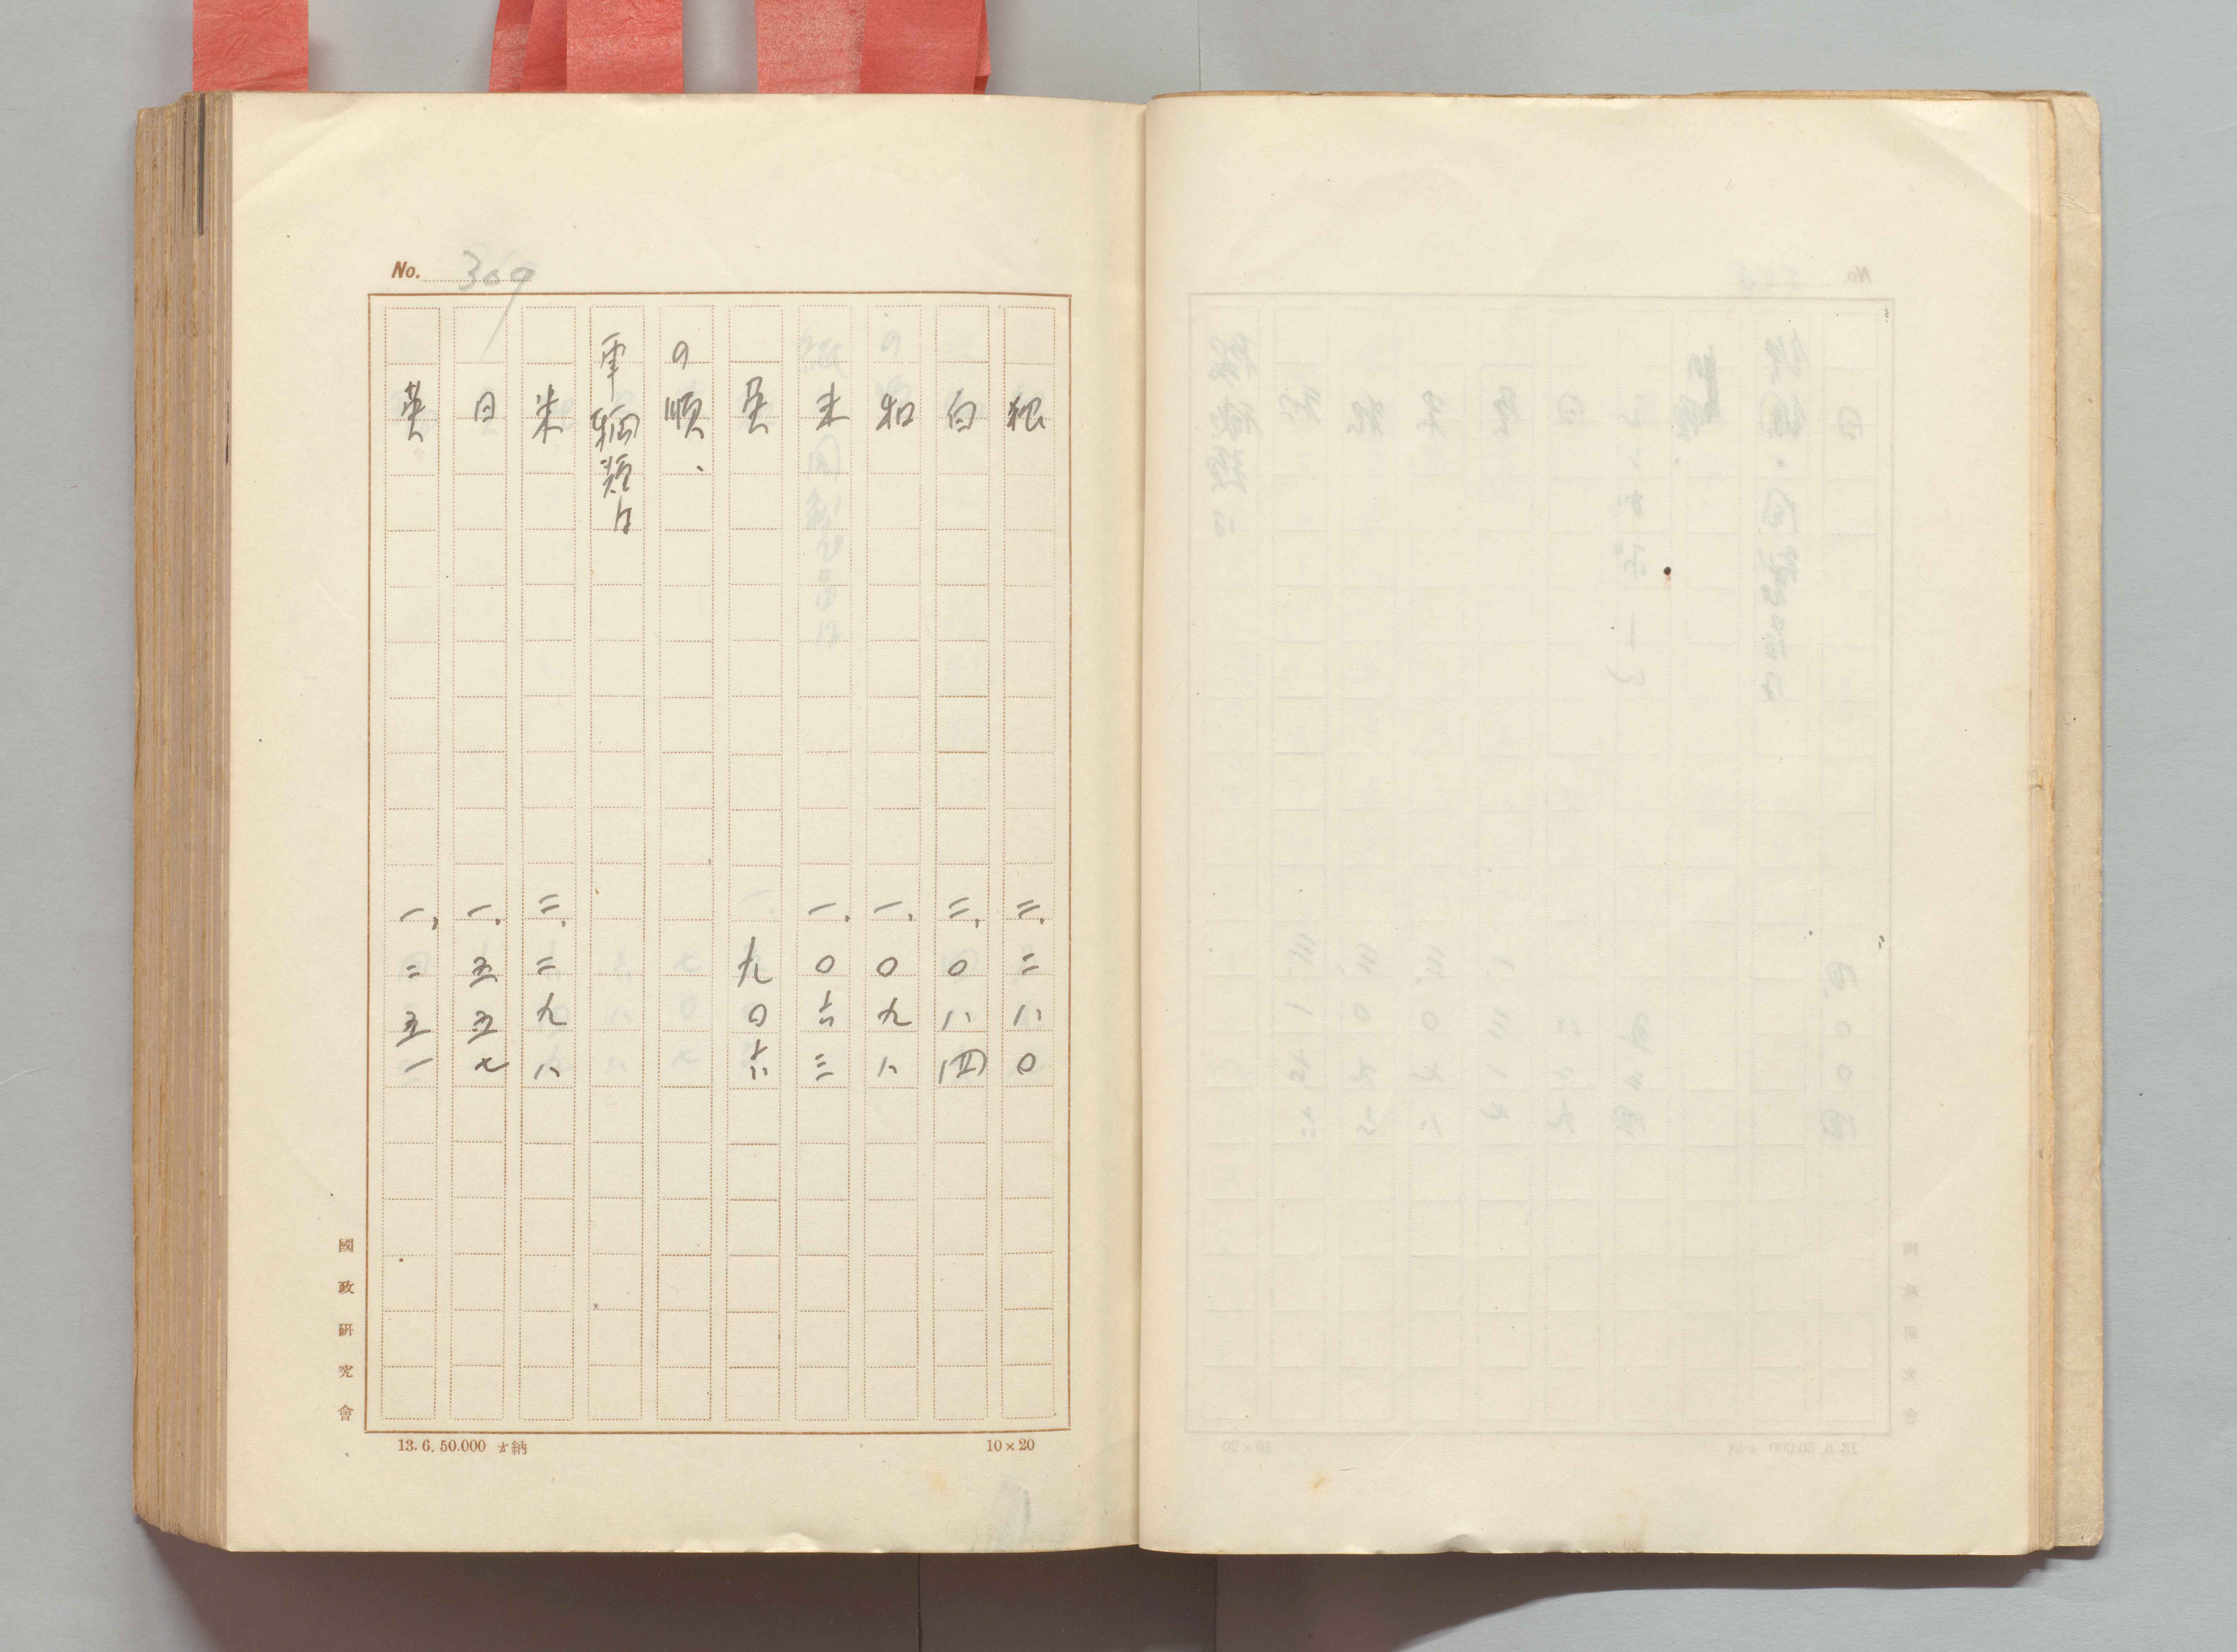 No. 309
独 二、二八〇
白 二、〇八四
和 一、〇九八
米 一、〇六三
英 九〇六
の順、
車輌類は
米 二、二九八
日 一、五五七
英 一、二五一
國政研究會
13. 6. 50.000
10×20